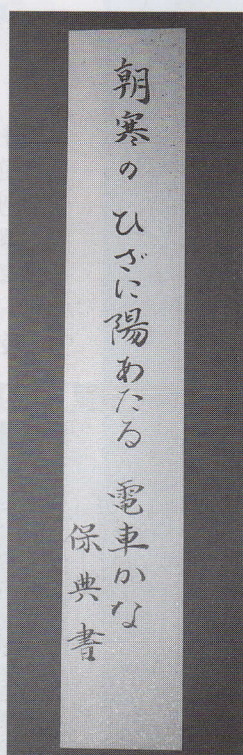 朝寒の ひざに陽あたる 電車かな
保典書